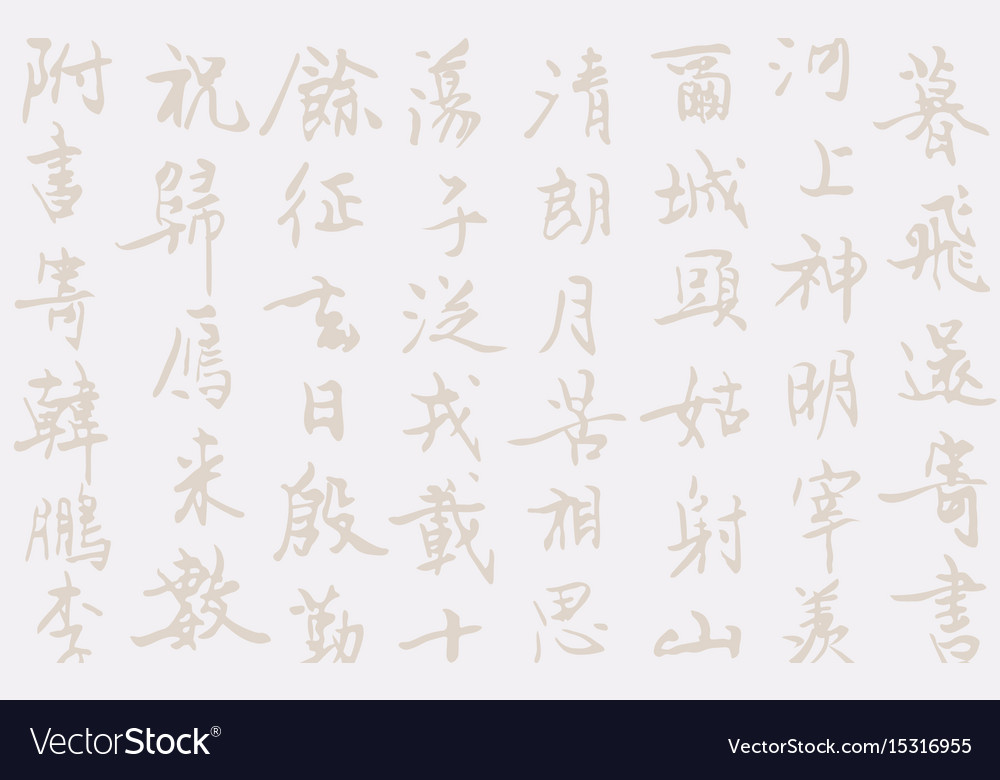 暮飛還寄書
河上神明宰羨
爾城頭姑射山
清朗月苦相思
蕩子從戎載十
餘征去日殷勤
祝歸鴈来數
附書寄韓鵬李
VectorStock®
VectorStock.com/15316955